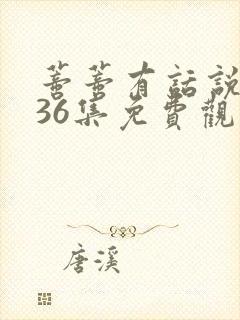 蓄蓄有話說
36集免費觀
唐溪